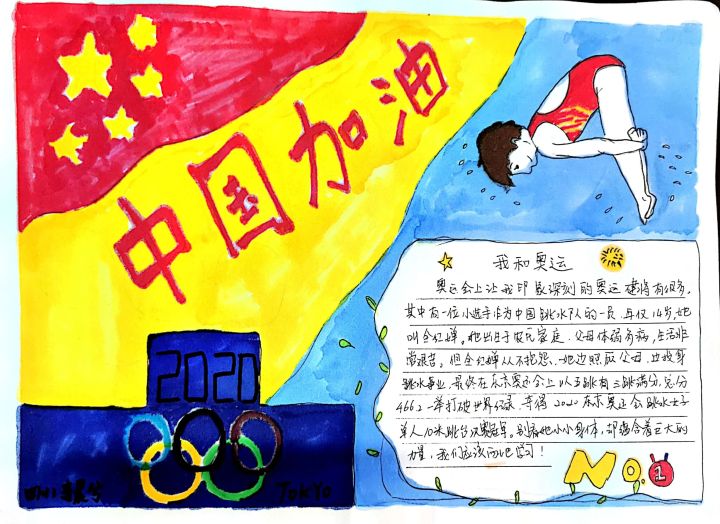 中国加油
2020
TOKYO
我和奥运
奥运会上让我印象深刻的奥运健将有很多,
其中有一位小选手作为中国跳水队的一员,年仅14岁,她
叫全红婵。她出生于农民家庭,父母体弱多病,生活非
常艰苦。但全红婵从不抱怨,她边照顾父母,边投身
跳水事业,最终在东京奥运会上以五跳有三跳满分,总分
466.2一举打破世界纪录,夺得2020东京奥运会跳水女子
单人10米跳台决赛冠军。别看她小小身体,却蕴含着巨大的
力量,我们应该向她学习!
No.1